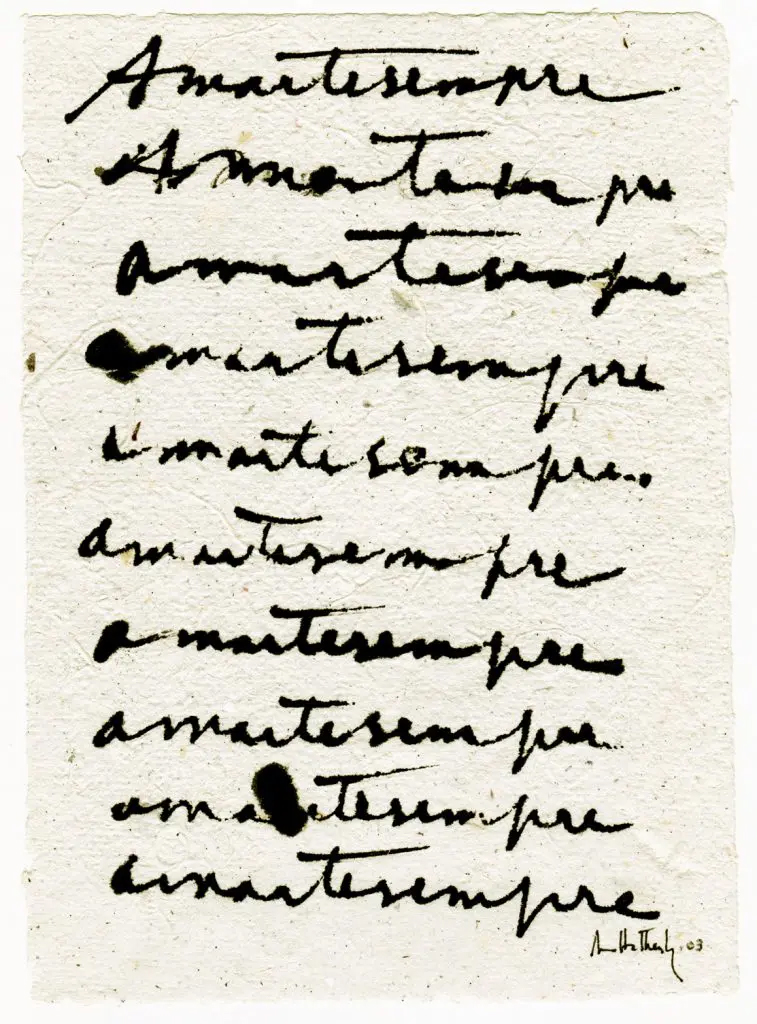 Amartesempre
Amartesem pre
amartesempre
amartesempre
a martesempre.
amartesem pre
a martesempre
amartesempre
amartesempre
amartesempre
Ana Hatherly. 03